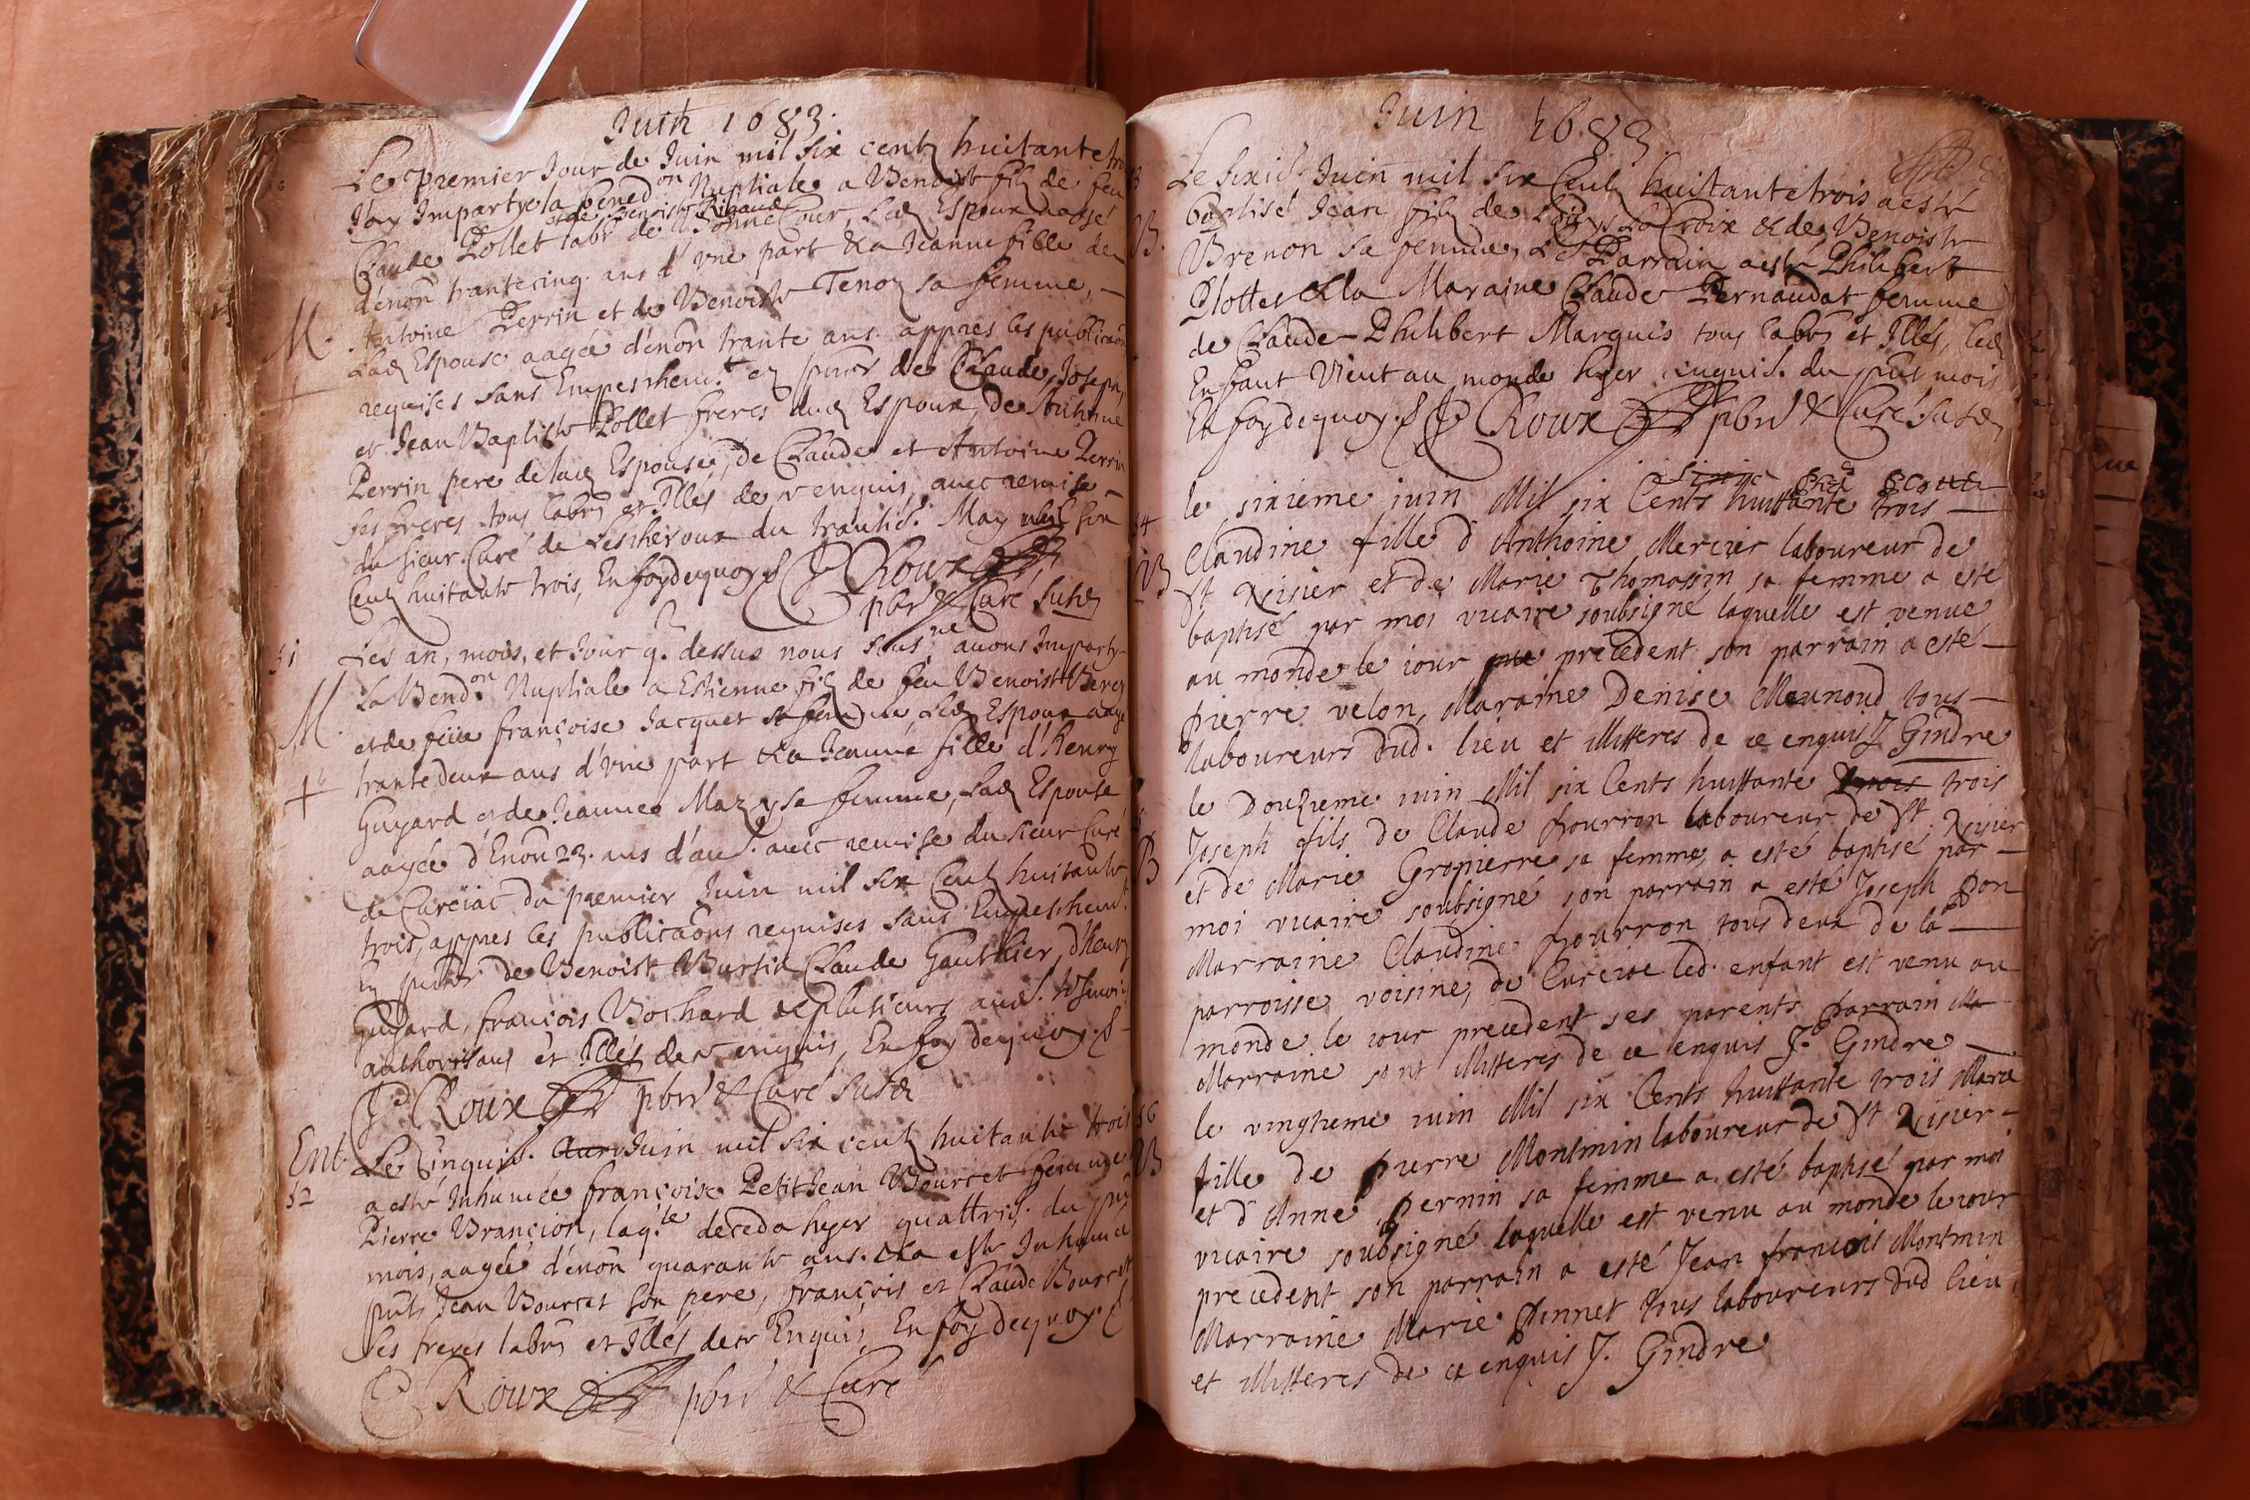 Juin 1683.
Le premier Jour de Juin mil six centz huitante
J'ay Imparty la bened.on Nuptiale a Benoist filz de feu
Claude Pollet labr. de Bonne Cour, Led. Espoux aagé
et de Benoiste Ribaud
d'enon trantecinq. ans d'vne part & a Jeanne fille de
M. Antoine Perrin et de Benoiste Tenoz sa femme,
Lad. Espouse aagée d'enon trante ans. appres les publicaons
requises sans Empeschem.t en pnce de Claude, Joseph,
et Jean Baptiste Pollet freres dud. Espoux, de Anthoine
Perrin pere de lad. Espousée, de Claude et Antoine Perrin
ses freres tous labrs et Illés de ce enquis, avec remise
du sieur Curé de Lescheroux du trantie. May mil six
Centz huitante trois, En foy dequoy
J. Roux pbre & Curé susd.
51 Les an, mois, et Jour q. dessus nous sous.né avons Imparty
M. La Bend.on Nuptiale a Estienne filz de feu Benoist
et de feüe françoise Jacquet sa femme Led. Espoux aagé
trante deux ans d'vne part & a Jeanne fille d'Henry
Guyard et de Jeanne Mazuy se femme, Lad. Espouse
aagée d'Enon 23. ans d'au. avec remise du sieur Curé
de Curciac du premier Juin mil six Centz huitante
trois, appres les publicaons requises sans Empeschem.t
En pnce de Benoist Claude Gauthier, d'henry
Guyard, françois Bochard & plusieurs
authorisans et Illés de ce enquis, En foy dequoy.
J. Roux pbre & Curé susd.
Ent. Le Cinquie. Juin mil six centz huitante trois
52 a esté Inhumée françoise Petitjean Bourcet femme
Pierre Brancion, laq.le deceda hyer quattrie. du pnt
mois, aagée d'enon quarante ans. & a esté Inhumé
pnts Jean Bourcet son pere, françois et Claude Bourcet
ses freres labrs et Illés de ce Enquis, En foy dequoy.
J. Roux pbre & Curé
Juin 1683
Le sixie. Juin mil six Centz huitante trois a esté
B. baptisé Jean filz de Loüys La Croix & de Benoiste
Brenon sa femme, Le Parrain a esté Philibert
Plottes & la Maraine Claude Pernaudat femme
de Claude Philibert Marquis tous labrs et Illés, led.
Enfant Vient au monde hyer cinquie. du pnt mois
En foy dequoy. J. Roux pbre & Curé susd.
54 le sixieme iuin Mil six Cents huittante trois
Claudine fille d'Anthoine Mercier laboureur de
B St Nisier et de Marie Thomassin sa femme a esté
baptisé par moi vicaire soubsigné laquelle est venue
au monde le iour precedent son parrain a esté
pierre velon, Maraine Denise Meunoud tous
laboureurs dud. lieu et illitteres de ce enquis J. Gindre
le Douzieme iuin Mil six Cents huittante trois
Joseph fils de Claude fourron laboureur de St. Nisier
B et de Marie Gropierre sa femme a esté baptisé par
moi vicaire soubsigné son parrain a esté Joseph Pon
Marraine Claudine fourron tous deux de la
parroisse voisine, de Curciac led. enfant est venu au
monde le iour precedent ses parents parrain Ma
Marraine sont illitteres de ce enquis J. Gindre
56 le vingtieme iuin Mil six Cents huittante trois Marie
B fille de pierre Montmin laboureur de St Nisier
et d'Anne pernin sa femme a esté baptisé par moi
vicaire soubsigné laquelle est venu au monde le iour
precedent son parrain a esté Jean françois Montmin
Marraine Marie pinnet tous laboureurs dud lieu
et illitteres de ce enquis J. Gindre